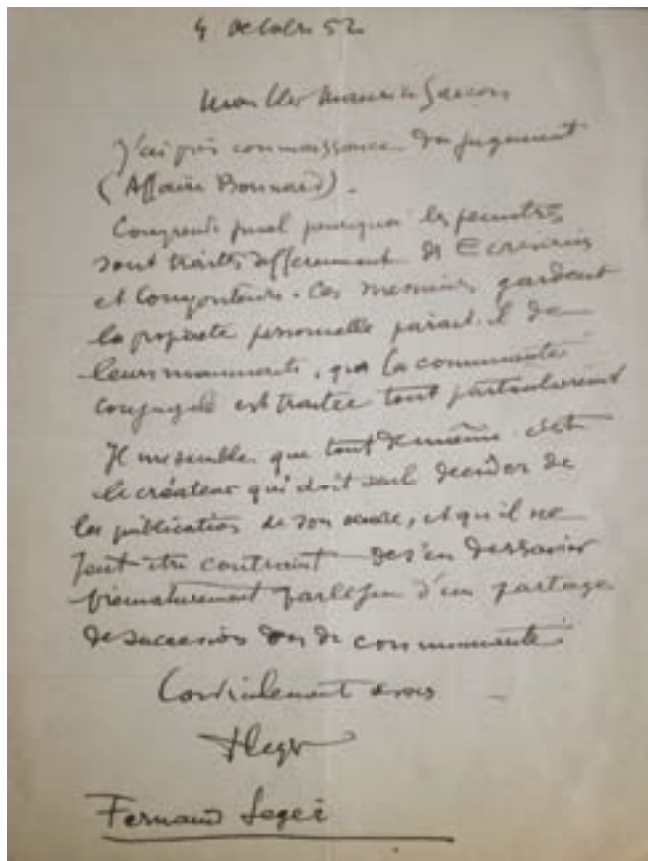 4 octobre 52
Mon cher Maurice Garçon
J'ai pris connaissance du jugement
(Affaire Bonnard).
Comprends pourquoi les peintres
sont traités differemment des Ecrivains
et Compositeurs. Ces messieurs gardent
la propriete personnelle parait il de
leurs manuscrits, que la communauté
conjugale est traitée tout particulierement
Il me semble que tout de même c'est
le créateur qui doit seul decider de
la publication de son œuvre, et qu'il ne
peut etre contraint de s'en dessaisir
prematurement par le jeu d'un partage
de succession ou de communauté
Cordialement a vous
FLeger
Fernand Leger